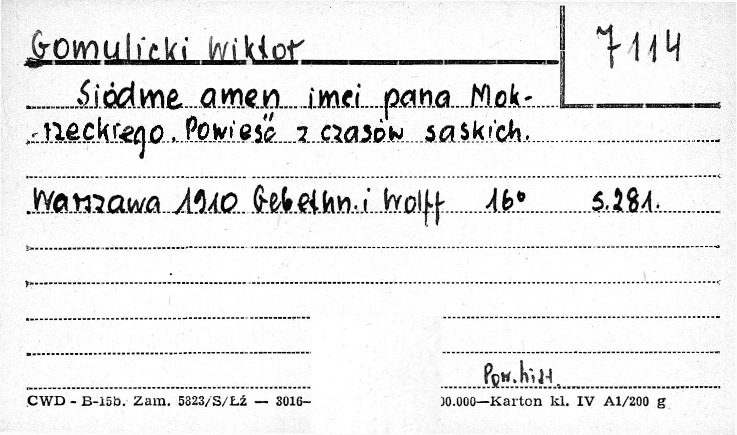 Gomulicki Wiktor
7114
Siódme amen imci pana Mok-
-rzeckiego. Powieść z czasów saskich.
Warszawa 1910 Gebethn. i Wolff 16° s. 281.
Pow. hist.
CWD - B-15b. Zam. 5823/S/Łź — 3016— 00.000—Karton kl. IV A1/200 g